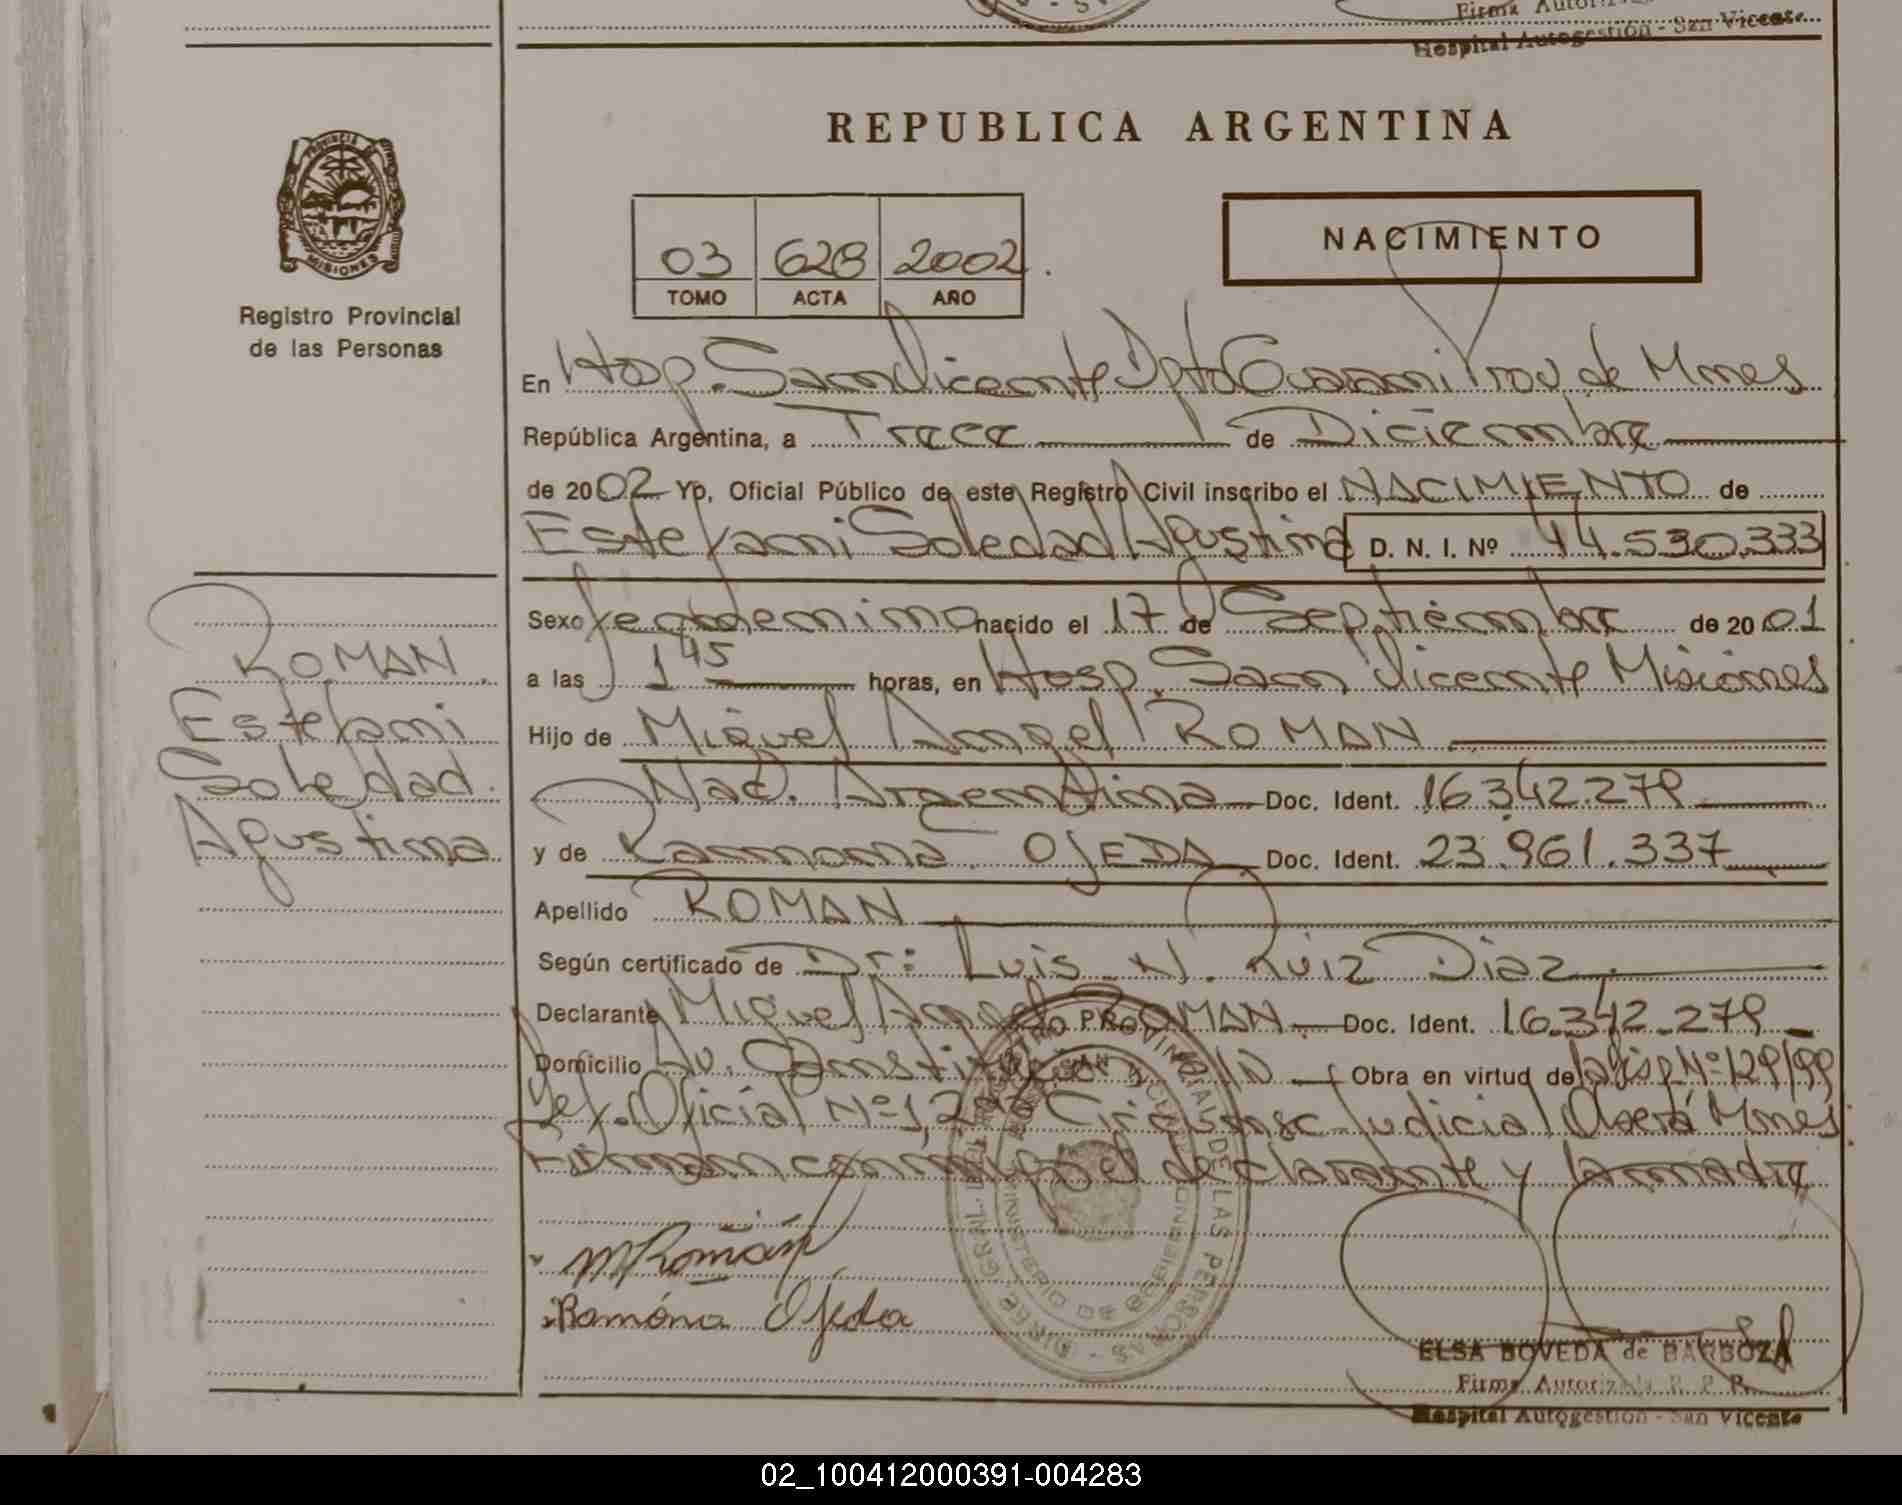 Firma Autoriz
Hospital Autogestion - San Vicente
PROVINCIA DE
MISIONES
Registro Provincial
de las Personas
REPUBLICA ARGENTINA
03 628 2002
TOMO ACTA AÑO
NACIMIENTO
En Hosp. San Vicente Dpto Guarani Prov de Mnes
República Argentina, a Trece de Diciembre
de 2002 Yo, Oficial Público de este Registro Civil inscribo el NACIMIENTO de
Estefani Soledad Agustina D. N. I. Nº 44.530.333
Sexo femenino nacido el 17 de Septiembre de 2001
a las 1 45 horas, en Hosp. San Vicente Misiones
Hijo de Miguel Angel ROMAN
Nac. Argentina Doc. Ident. 16.342.279
y de Ramona OJEDA Doc. Ident. 23.961.337
Apellido ROMAN
Según certificado de Dr: Luis N. Ruiz Diaz
Declarante Miguel Angel ROMAN Doc. Ident. 16.342.279
Domicilio Av. Constitución Obra en virtud de Disp Nº 129/99
Def. Oficial Nº 1, 2da Circunsc Judicial Oberá Mnes
Firman conmigo el declarante y la madre
ROMAN
Estefani
Soledad
Agustina
MRomán
Ramóna Ojeda
REGISTRO PROVINCIAL DE LAS PERSONAS
MINISTERIO DE GOBIERNO
ELSA BOVEDA de BARBOZA
Firma Autorizada R. P. P.
Hospital Autogestion - San Vicente
02_100412000391-004283